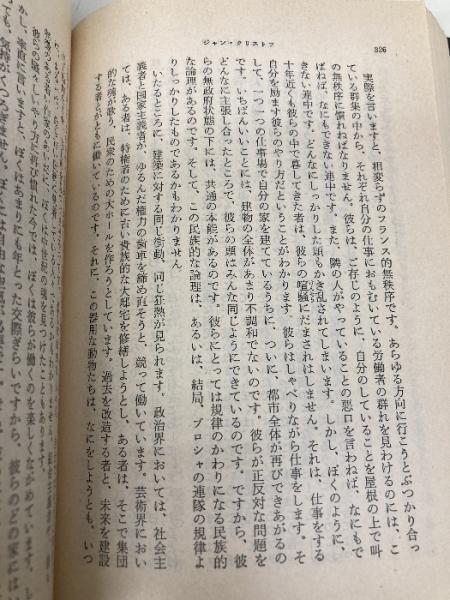 ジャン・クリストフ
326
実際を言いますと、相変らずのフランス的無秩序です。あらゆる方向に行こうとぶつかり合っ
ている群集の中から、それぞれ自分の仕事におもむいている労働者の群れを見わけるのには、こ
の無秩序に慣れねばなりません。彼らは、ご存じのように、自分のしていることを屋根の上で叫
ばねば、なにもできない連中です。また、隣の人がやっていることの悪口を言わねば、なにもで
きない連中です。どんなにしっかりした頭もかき乱されてしまいます。しかし、ぼくのように、
十年近くも彼らの中で暮してきた者は、彼らの喧騒にだまされはしません。それは、仕事をする
自分を励ます彼らのやり方だということがわかります。彼らはしゃべりながら仕事をします。そ
して、一つ一つの仕事場で自分の家を建てているうちに、ついに、都市全体が再びできあがるの
です。いちばんいいことには、建物の全体があまり不調和でないのです。彼らが正反対な問題を
どんなに主張し合ったところで、彼らの頭はみんな同じようにできているのです。ですから、彼
らの無政府状態の下には、共通の本能があるのです。彼らにとっては規律のかわりになる民族的
な論理があるのです。そして、この民族的な論理は、あるいは、結局、プロシャの連隊の規律よ
りしっかりしたものであるかもわかりません
いたるところに、建築に対する同じ衝動、同じ狂熱が見られます。政治界においては、社会主
義者と国家主義者が、ゆるんだ権力の歯車を締め直そうと、競って働いています。芸術界におい
ては、ある者は、特権者のために古い貴族的な大邸宅を修繕しようとし、ある者は、そこで集団
的な魂が歌う、民衆のための大ホールを作ろうとしています。過去を改造する者と、未来を建設
する者らがともに働いているのです。それに、この器用な動物たちは、なにをしようとも、いつ
やり方にも慣れた今では、ぼくは彼らが働くのを楽しくながめています。し
かし、率直に言いますと、ぼくはあまりにも年とった交際ぎらいですから、彼らのどの家には
ても、気持がくつろぎません。ぼくには自由な空気が